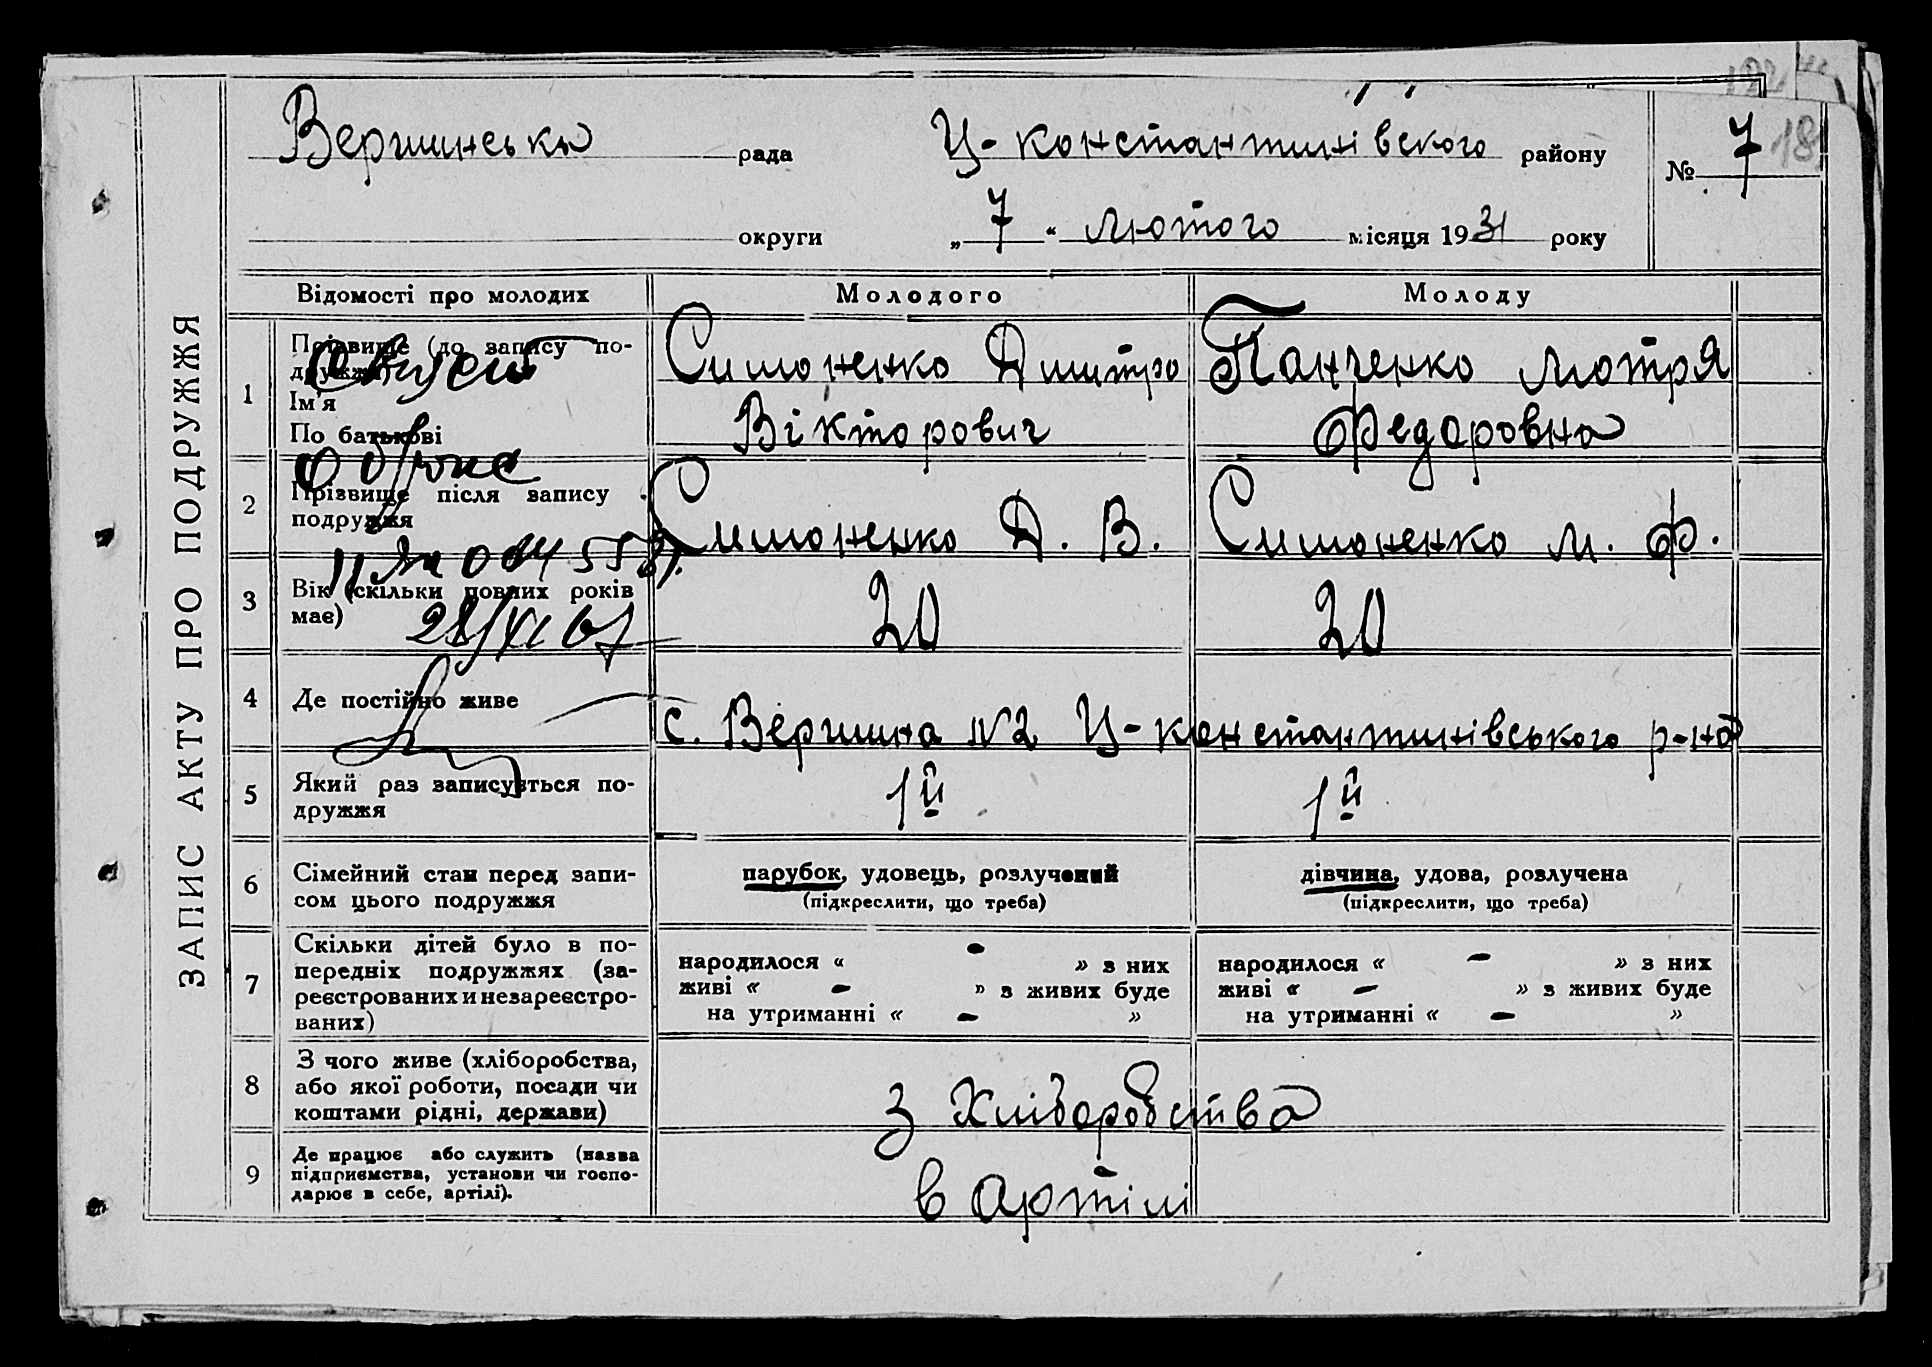 18
Вершинська рада Ц-константинівского району № 7
округи „ 7 “ лютого місяця 1931 року
ЗАПИС АКТУ ПРО ПОДРУЖЖЯ
Відомості про молодих Молодого Молоду
1 Прізвище (до запису по-
дружжя) Симоненко Дмитро Панченко Мотря
Ім'я
По батькові Вікторович Федоровна
2 Прізвище після запису
подружжя Симоненко Д. В. Симоненко М. Ф.
3 Вік (скільки повних років
має) 20 20
28/XI 67
4 Де постійно живе с. Вершина №2 Ц-константинівського р-на
5 Який раз записується по-
дружжя 1й 1й
6 Сімейний стан перед запи-
сом цього подружжя
парубок, удовець, розлучений
(підкреслити, що треба)
дівчина, удова, розлучена
(підкреслити, що треба)
7 Скільки дітей було в по-
передніх подружжях (за-
реєстрованих и незареєстро-
ваних)
народилося « - » з них
живі « - » з живих буде
на утриманні « - »
народилося « - » з них
живі « - » з живих буде
на утриманні « - »
8 З чого живе (хліборобства,
або якої роботи, посади чи
коштами рідні, держави)
З Хліборобства
9 Де працює або служить (назва
підприємства, установи чи госпо-
дарює в себе, артілі).
в артілі